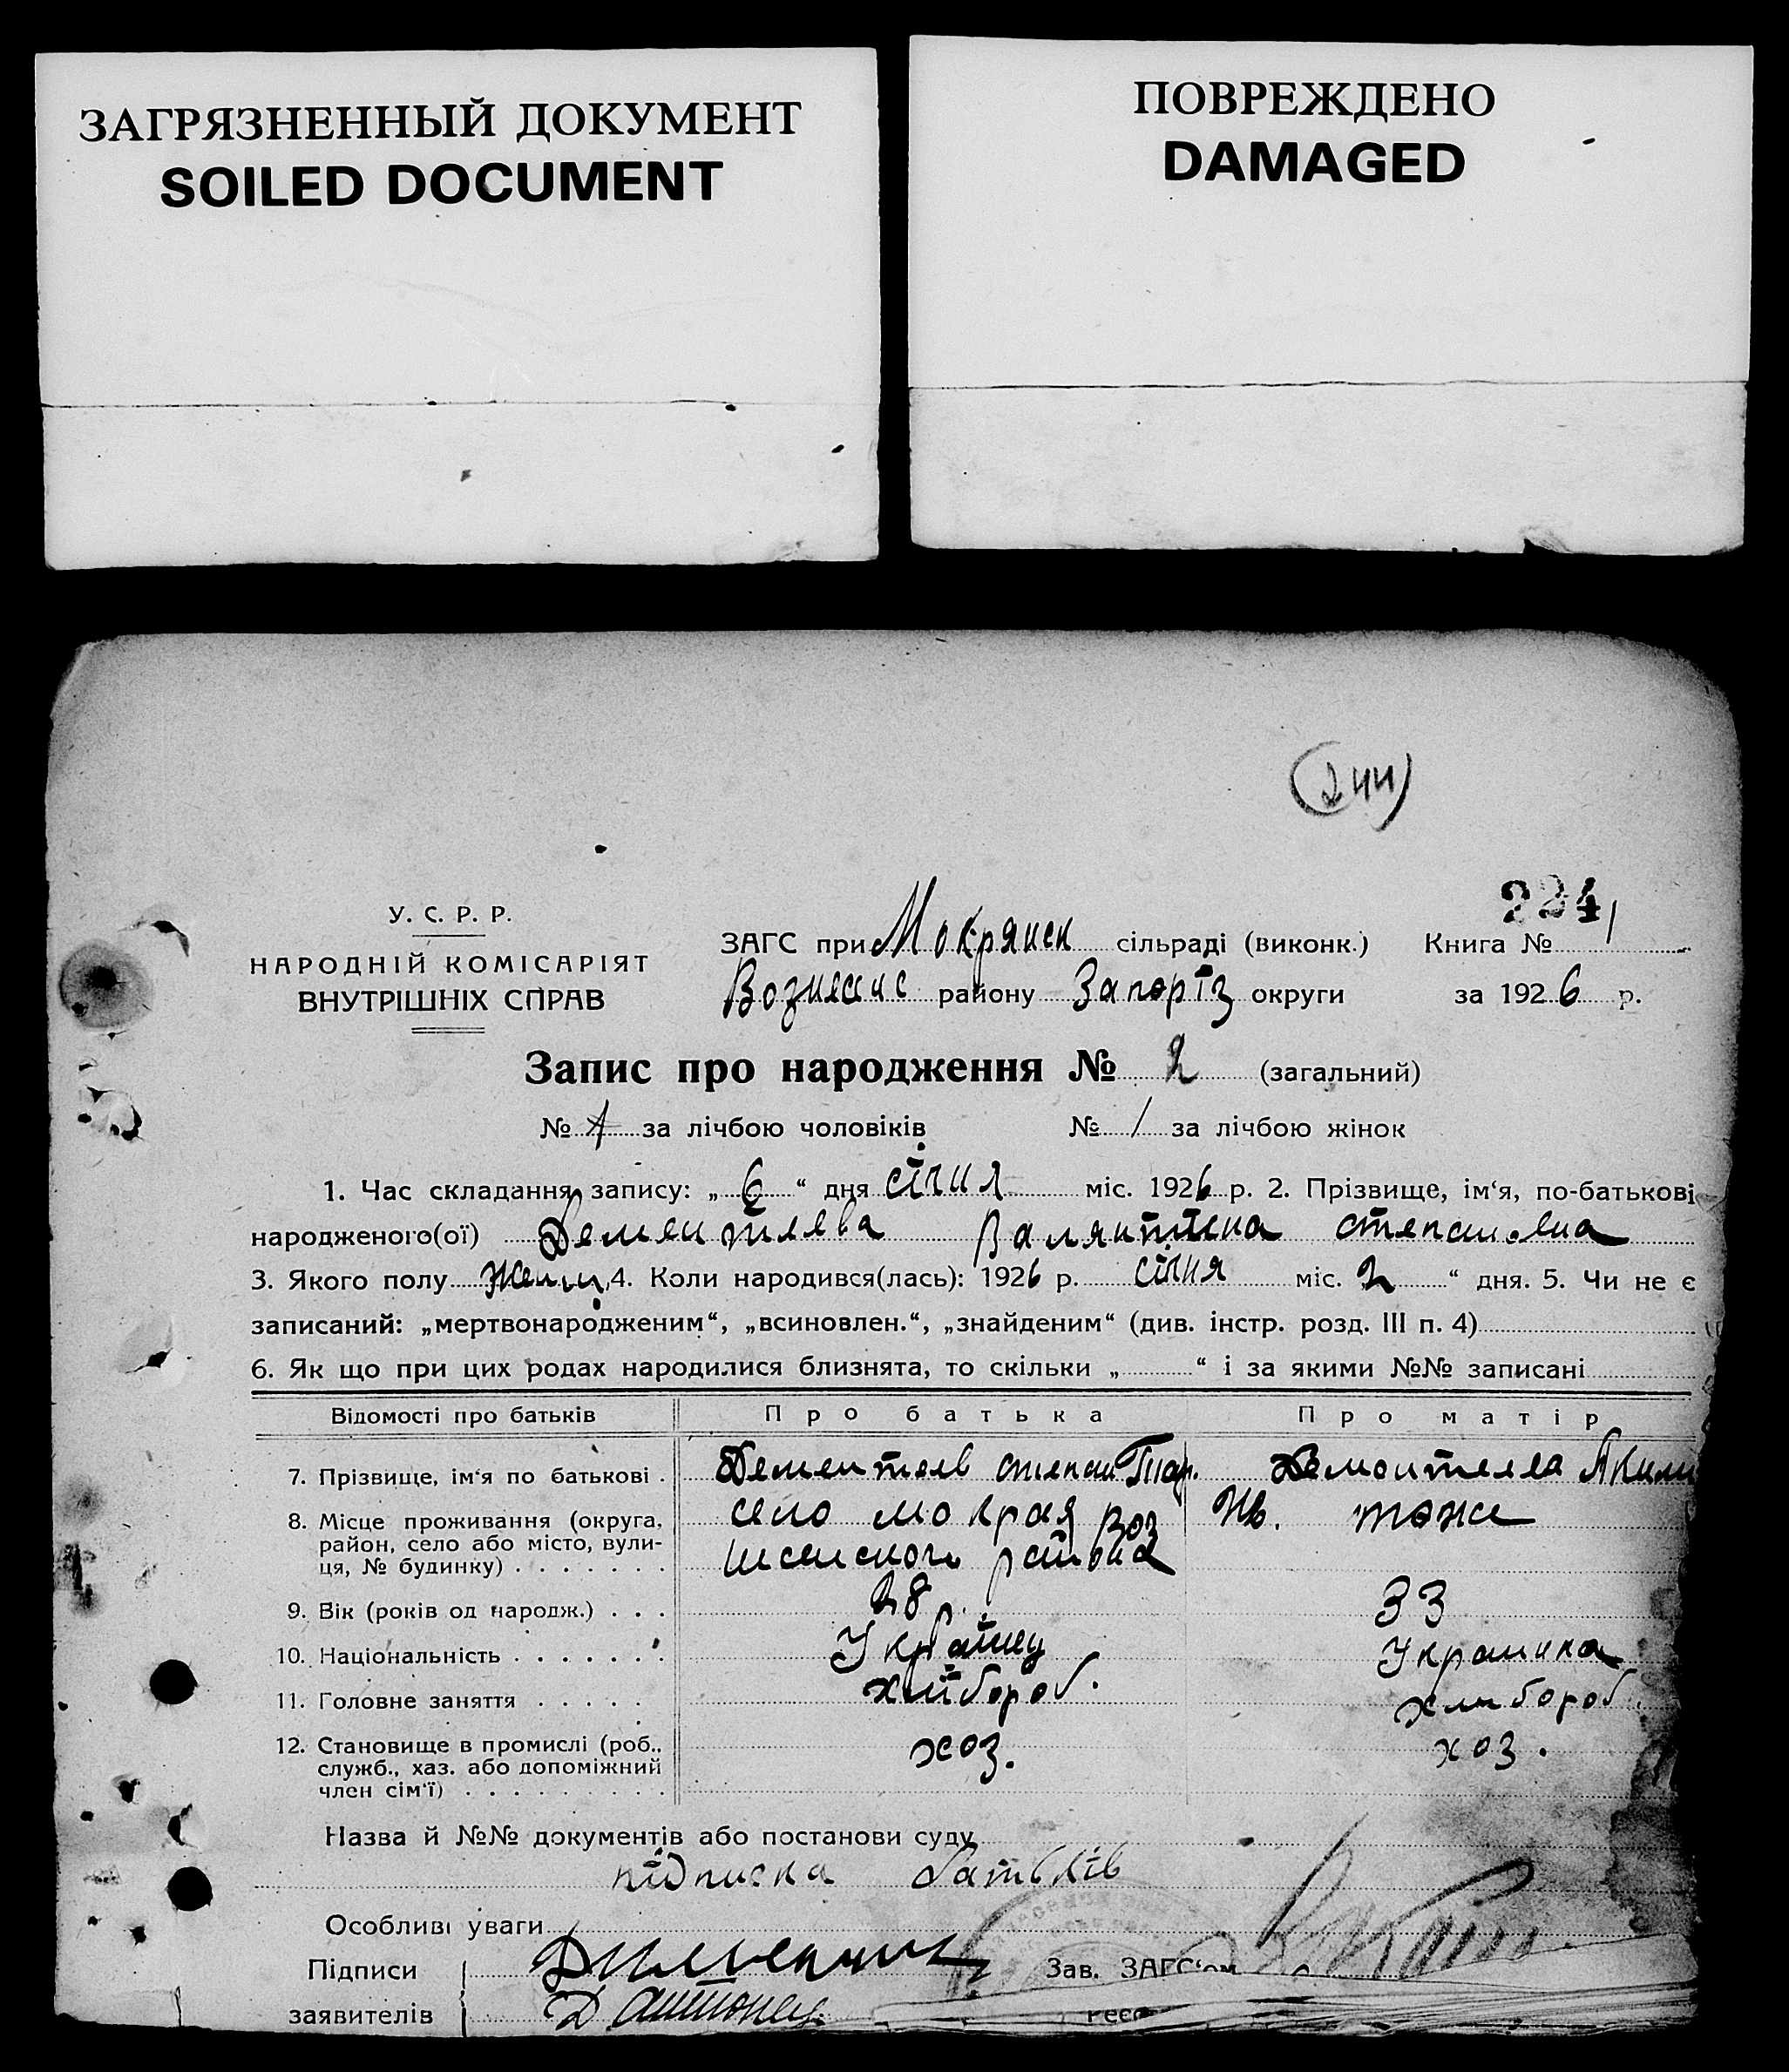 ЗАГРЯЗНЕННЫЙ ДОКУМЕНТ
SOILED DOCUMENT
ПОВРЕЖДЕНО
DAMAGED
(244)
224
У. С. Р. Р.
НАРОДНІЙ КОМІСАРІЯТ
ВНУТРІШНІХ СПРАВ
ЗАГС при Мокрянск сільраді (виконк.) Книга № 1
Вознесенс району Запоріз округи за 1926 р.
Запис про народження № 2 (загальний)
№ за лічбою чоловіків № 1 за лічбою жінок
1. Час складання запису: „ 6 “ дня січня міс. 1926 р. 2. Прізвище, ім‘я, по-батькові
народженого(ої) Дементьева Валянтина степановна
3. Якого полу 4. Коли народився(лась): 1926 р. січня міс. 2 “ дня. 5. Чи не є
записаний: „мертвонародженим“, „всиновлен.“, „знайденим“ (див. інстр. розд. III п. 4)
6. Як що при цих родах народилися близнята, то скільки „ “ і за якими №№ записані
Відомості про батьків Про батька Про матір
7. Прізвище, ім‘я по батькові . Дементьев степан Дементьева Акили
8. Місце проживання (округа, село мокрая Воз Ив. тоже
район, село або місто, вули- района
ця, № будинку) . . . . . . .
9. Вік (років од народж.) . . . 28 33
10. Національність . . . . . . . Українец Украинка
11. Головне заняття . . . . . хлібороб. хлибороб.
12. Становище в промислі (роб., хоз. хоз.
служб., хаз. або допоміжний
член сім‘ї) . . . . . . . . .
Назва й №№ документів або постанови суду
підписка батьків
Особливі уваги
Підписи Зав. ЗАГС‘ом
заявителів